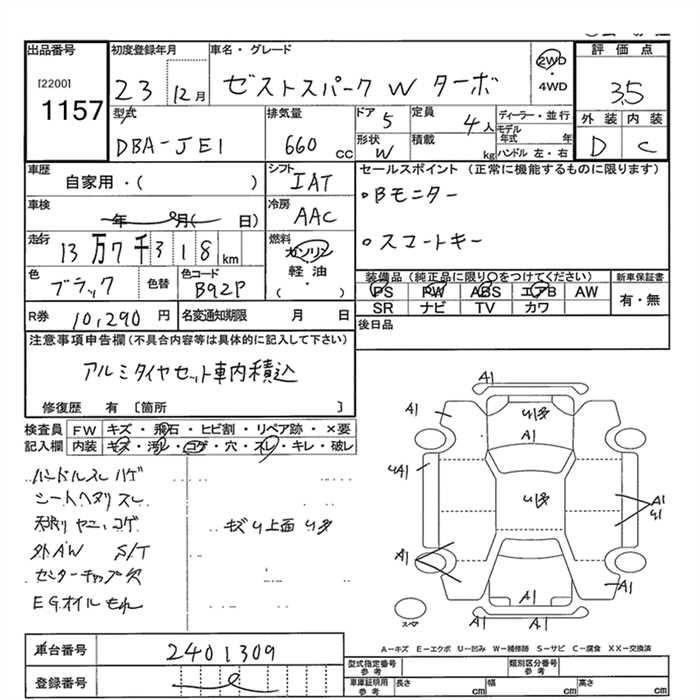 出品番号 初度登録年月 車名・グレード 評価点
[2200]
1157
23 12月 ゼストスパーク W ターボ 2WD・4WD 3.5
型式 DBA-JE1
排気量 660 cc
ドア 5
定員 4人
形状 W
積載 kg
ディーラー・並行
モデル年式 年
ハンドル 左・右
外装 内装
D C
車歴 自家用・( )
シフト IAT
セールスポイント (正常に機能するものに限ります)
・Bモニター
・スマートキー
車検 年 月( 日)
冷房 AAC
走行 13万7千318km
燃料 ガソリン
軽・油
( )
色 ブラック 色替
色コード B92P
装備品 (純正品に限り○をつけてください) 新車保証書
PS PW ABS エアB AW 有・無
SR ナビ TV カワ
R券 10,290円 名変通知期限 月 日
後日品
注意事項申告欄(不具合内容等は具体的に記入して下さい)
アルミタイヤセット車内積込
修復歴 有 [箇所 ]
検査員 FW キズ・飛石・ヒビ割・リペア跡・×要
記入欄 内装 キズ・汚レ・コゲ・穴・スレ・キレ・破レ
ハンドルスレハゲ
シートヘタリスレ
天張リヤニ、コゲ キズU上面U多
外AW S/T
センターキャップ欠
EGオイルもれ
A1
A1 U多 A1
A1
UA1 U多 A1
U1
A1
A1 A1
スペア A1
車台番号 2401309
登録番号
A-キズ E-エクボ U-凹み W-補修跡 S-サビ C-腐食 XX-交換済
型式指定番号 参考 類別区分番号 参考
車庫証明用 参考 長さ cm 幅 cm 高さ cm